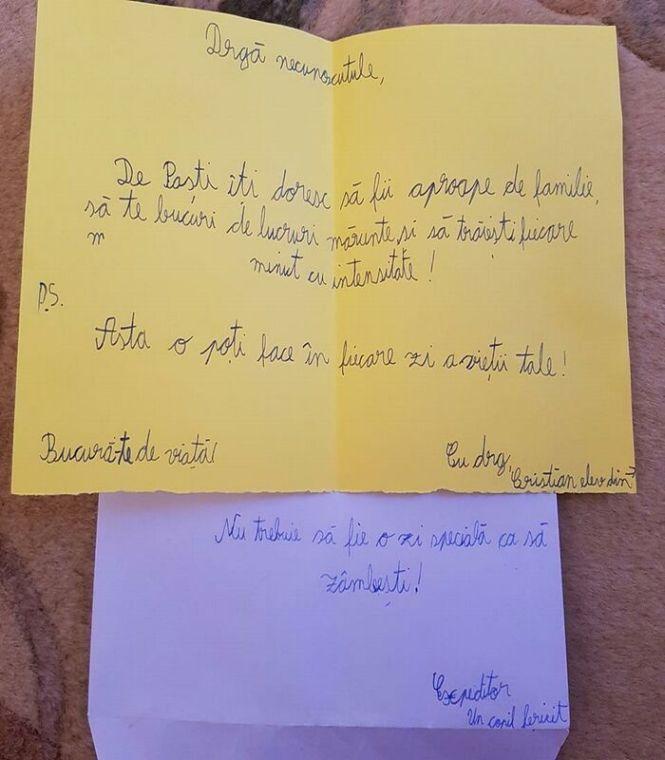 Drgă necunoscutule,
De Paști îți doresc să fii aproape de familie,
să te bucuri de lucruri mărunte și să trăiești fiecare
m
minut cu intensitate!
P.S.
Asta o poți face în fiecare zi a vieții tale!
Bucură-te de viață!
Cu drg,
Cristian elev din
Nu trebuie să fie o zi specială ca să
zâmbești!
Expeditor
Un copil fericit